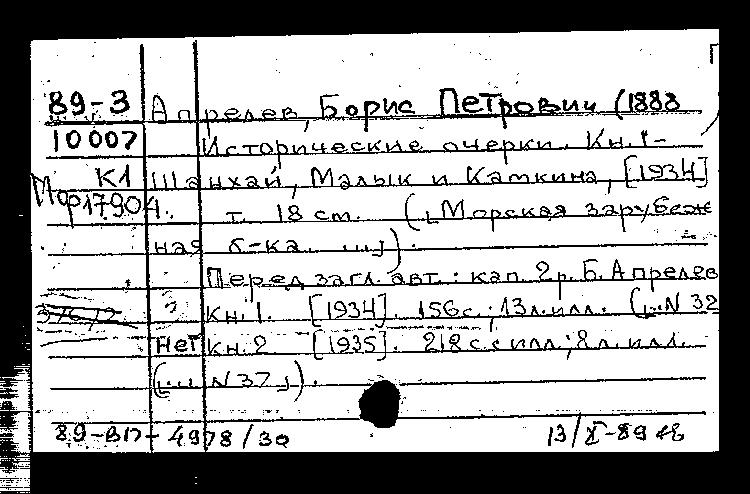 89-3 Апрелев, Борис Петрович (1888
10007 Исторические очерки. Кн. 1-
К1 Шанхай, Малык и Камкина, [1934]
Мф 17904. т. 18 cm. („Морская зарубеж
ная б-ка ...").
Перед загл. авт.: кап. 2 р. Б. Апрелев
Кн. 1. [1934]. 156 с.; 13 л. илл. („... N 32
Нет Кн. 2 [1935]. 218 с. с илл.; 8 л. илл.
(„... N 37").
89-ВП-4978/30 13/X-89